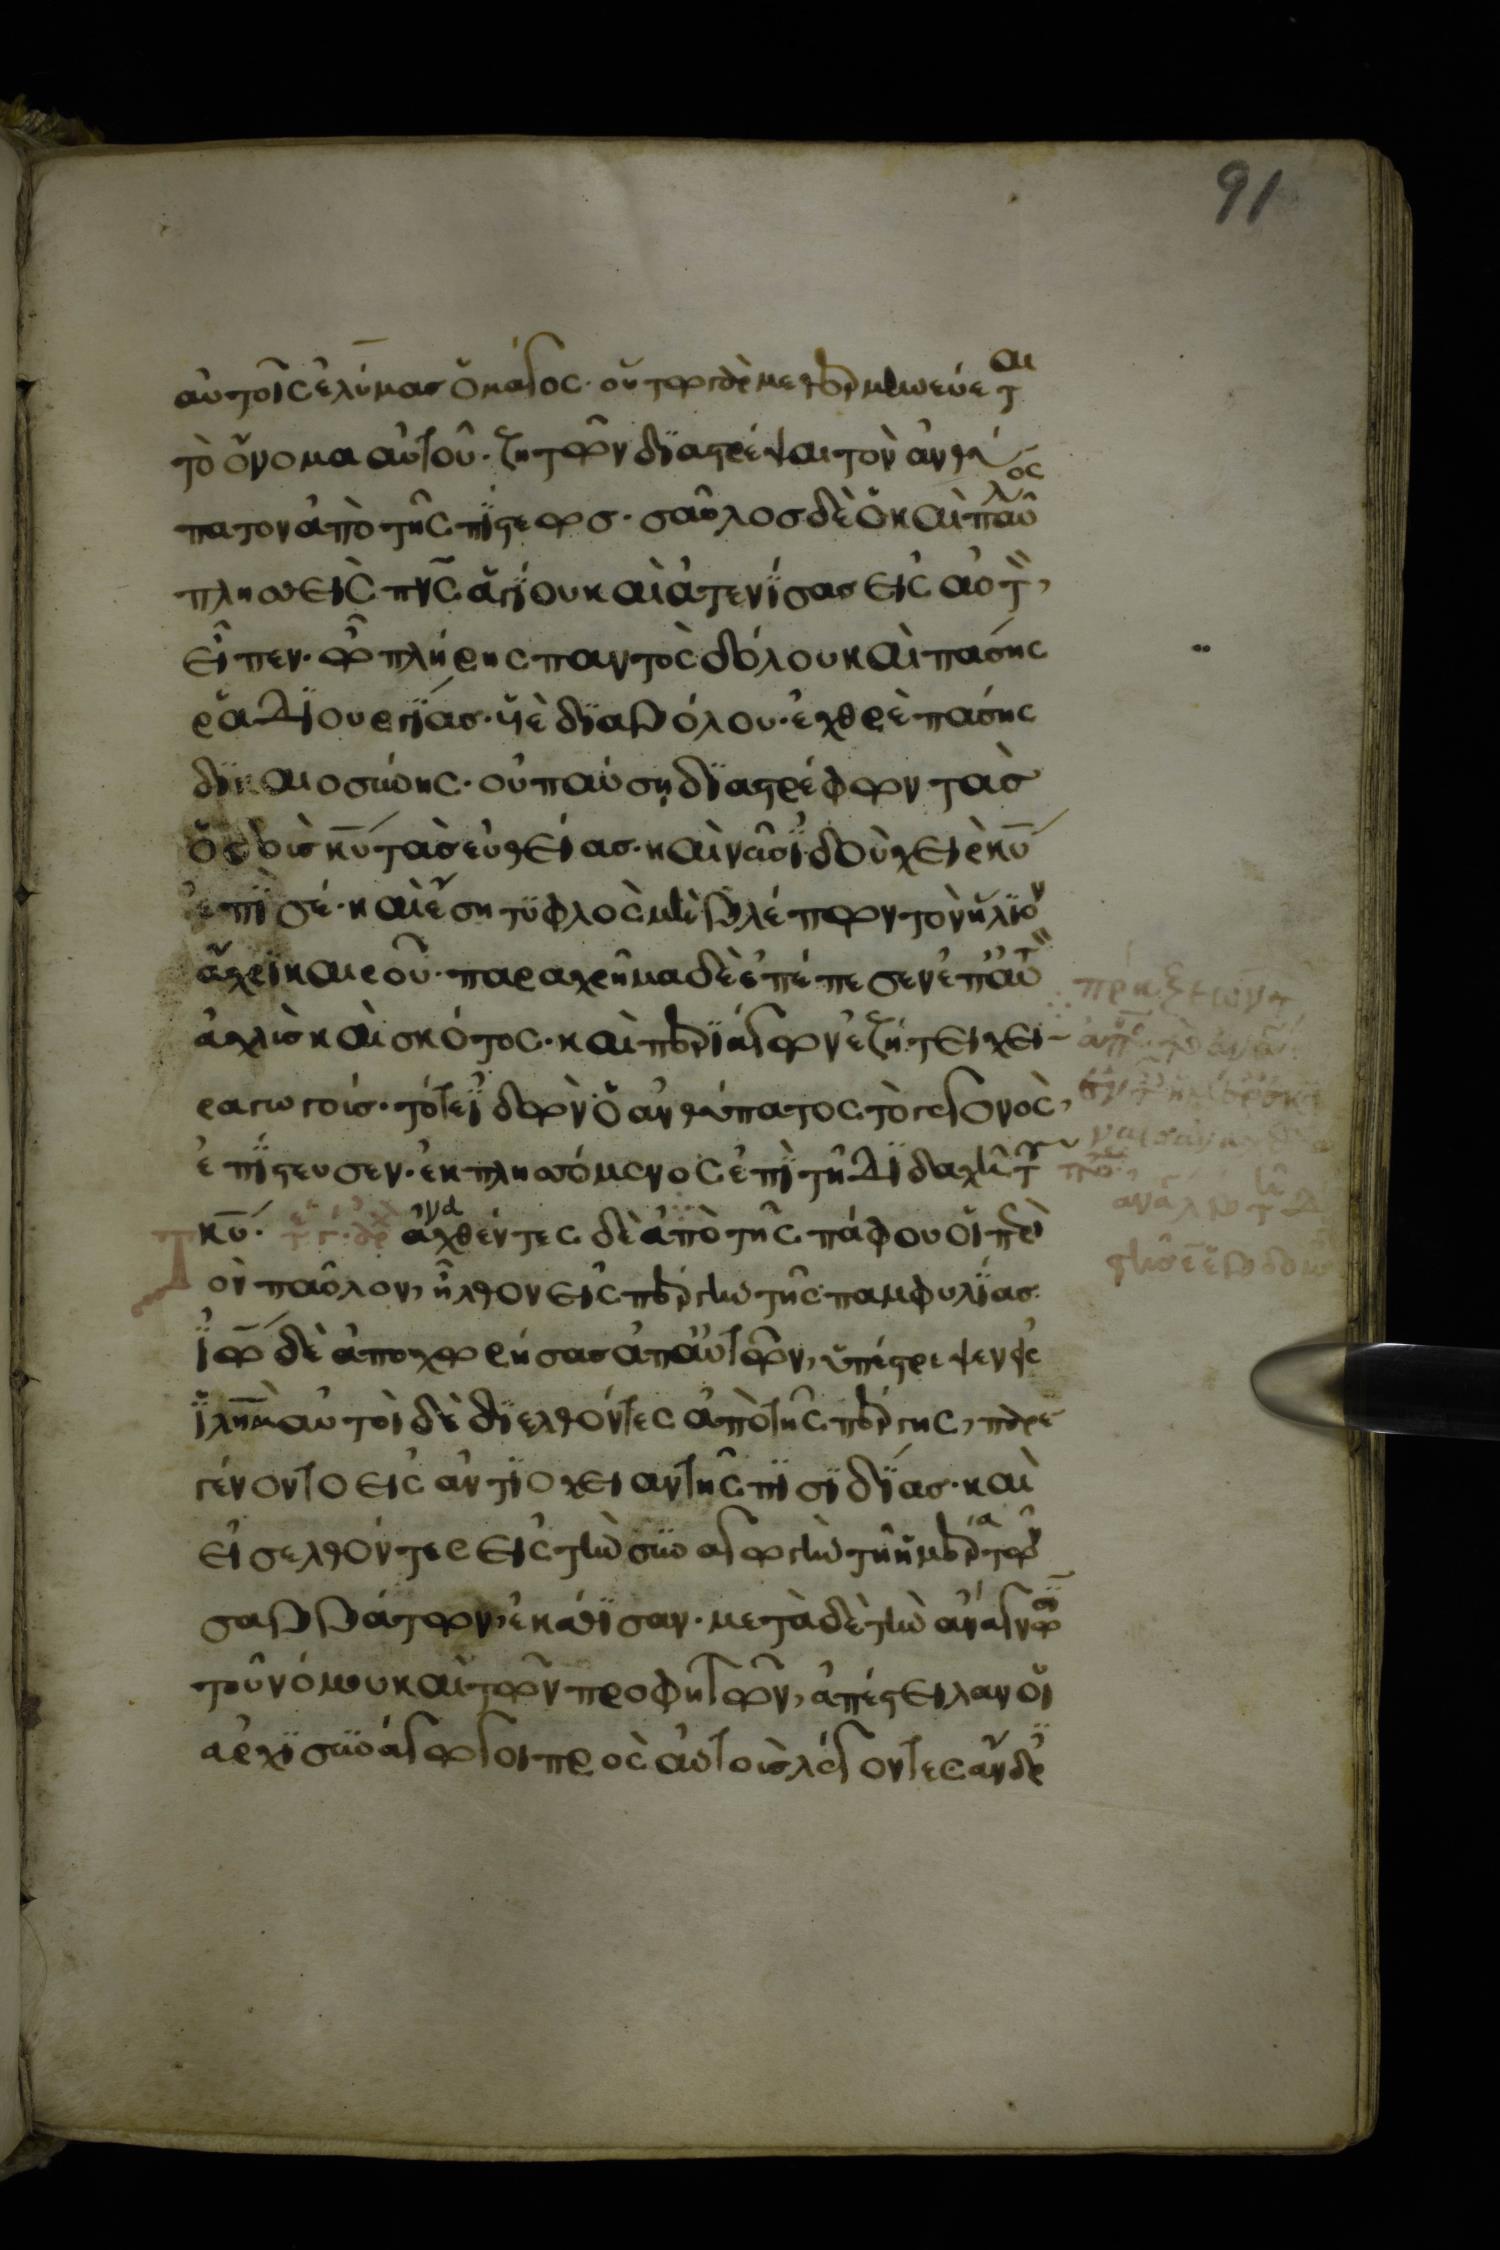 91
αὐτοῖς ἐλύμας ὁ μάγος· οὕτως γὰρ μεθερμηνεύεται
τὸ ὄνομα αὐτοῦ· ζητῶν διαστρέψαι τὸν ἀνθύ
πατον ἀπὸ τῆς πίστεως· σαῦλος δὲ ὁ καὶ παῦλος
πλησθεὶς πνς ἁγίου καὶ ἀτενίσας εἰς αὐτὸν,
εἶπεν· ὦ πλήρης παντὸς δόλου καὶ πάσης
ῥαδιουργίας· υἱὲ διαβόλου· ἐχθρὲ πάσης
δικαιοσύνης· οὐ παύσῃ διαστρέφων τὰς
ὁδοὺς κυ τὰς εὐθείας· καὶ νῦν ἰδοὺ χεὶρ κυ
ἐπὶ σέ· καὶ ἔσῃ τυφλὸς μὴ βλέπων τὸν ἥλιον
ἄχρι καιροῦ· παραχρῆμα δὲ ἐπέπεσεν ἐπ' αὐτὸν
ἀχλὺς καὶ σκότος· καὶ περιάγων ἐζήτει χει
ραγωγούς· τότε ἰδὼν ὁ ἀνθύπατος τὸ γεγονὸς,
ἐπίστευσεν· ἐκπλησσόμενος ἐπὶ τῇ διδαχῇ τοῦ
κυ· ἀναχθέντες δὲ ἀπὸ τῆς πάφου οἱ περὶ
τὸν παῦλον, ἦλθον εἰς πέργην τῆς παμφυλίας·
ἰω δὲ ἀποχωρήσας ἀπ' αὐτῶν, ὑπέστρεψεν εἰς
ἰλημ αὐτοὶ δὲ διελθόντες ἀπὸ τῆς πέργης, παρε
γένοντο εἰς ἀντιόχειαν τῆς πισιδίας· καὶ
εἰσελθόντες εἰς τὴν συναγωγὴν τῇ ἡμέρα τῶν
σαββάτων, ἐκάθισαν· μετὰ δὲ τὴν ἀνάγνωσιν
τοῦ νόμου καὶ τῶν προφητῶν, ἀπέστειλαν οἱ
ἀρχισυνάγωγοι πρὸς αὐτοὺς λέγοντες ἄνδρες